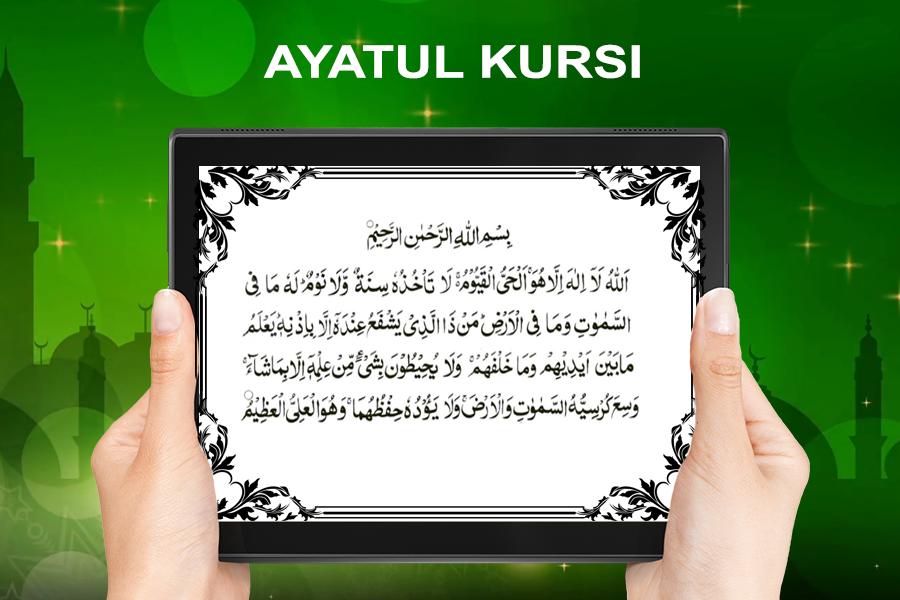 AYATUL KURSI
بِسْمِ اللهِ الرَّحْمٰنِ الرَّحِيْمِ
اَللهُ لَآ اِلٰهَ اِلَّا هُوَ ۚ اَلْحَیُّ الْقَيُّوْمُ ۚ لَا تَاْخُذُهٗ سِنَةٌ وَّلَا نَوْمٌ ؕ لَهٗ مَا فِی
السَّمٰوٰتِ وَمَا فِی الْاَرْضِ ؕ مَنْ ذَا الَّذِیْ يَشْفَعُ عِنْدَهٗۤ اِلَّا بِاِذْنِهٖ ؕ يَعْلَمُ
مَا بَيْنَ اَيْدِيْهِمْ وَمَا خَلْفَهُمْ ۚ وَلَا يُحِيْطُوْنَ بِشَیْءٍ مِّنْ عِلْمِهٖۤ اِلَّا بِمَا شَآءَ ۚ
وَسِعَ كُرْسِيُّهُ السَّمٰوٰتِ وَالْاَرْضَ ۚ وَلَا يَؤُدُهٗ حِفْظُهُمَا ۚ وَهُوَ الْعَلِیُّ الْعَظِيْمُ